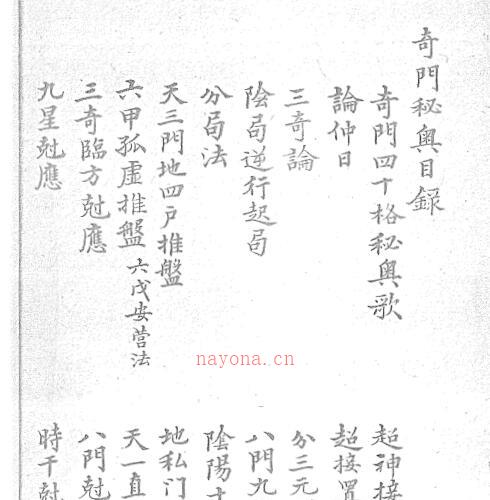 奇門秘奥目録
奇門四十格秘奥歌
超神接
論仲日
超接置
三奇論
分三元
陰局逆行起局
八門九
分局法
陰陽
天三門地四户推盤
地私门
六甲孤虚推盤 六戊安营法
天一直
三奇臨方尅應
八門尅
九星尅應
時干尅
nayona.cn